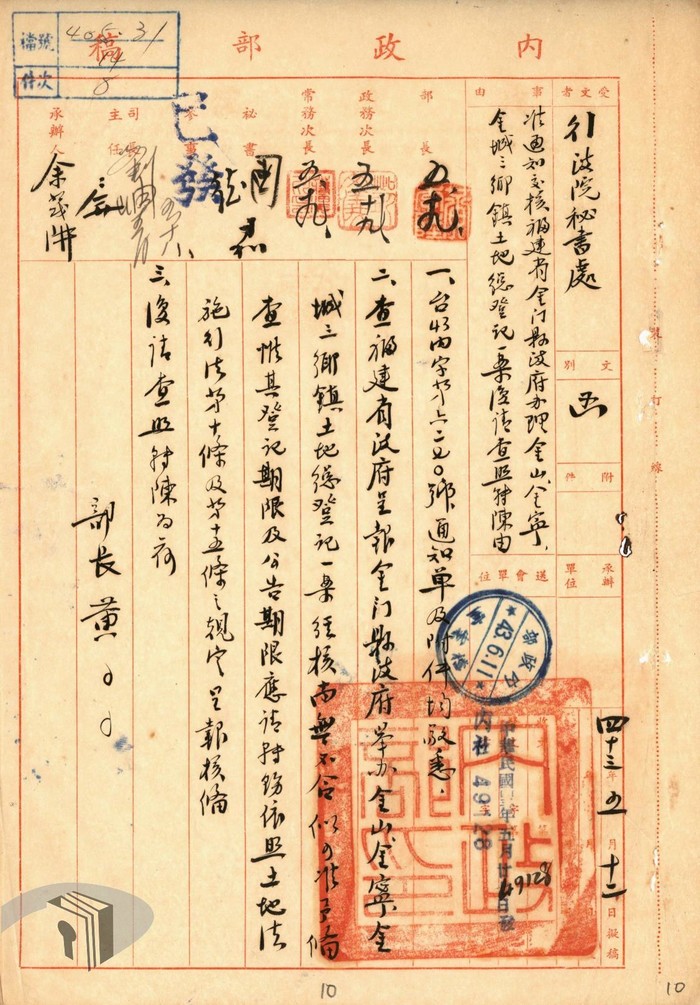 內政部稿
檔號 405.31
14
件次 8
受文者
行政院秘書處
文別
函
附件
事由
准通知交核福建省金門縣政府办理金山、金寧、
金城三鄉鎮土地總登記一案復請查照轉陳由
送會單位
承辦單位
部長
五.十九、
政務次長
五.十九
常務次長
五.十九、
秘書
參事
司
主任
五.十八、
承辦人
已發
一、台內字第六二五〇號通知單及附件均敬悉.
二、查福建省政府呈報金门縣政府舉办金山金寧金
城三鄉鎮土地總登記一案經核尚無不合似可准予俻
查惟其登記期限及公告期限應請轉飭依照土地法
施行法第十條及第十五條之規定呈報核俻
三、復請查照轉陳為荷
部长黃〇〇
內政部
43.6.11
檔案
四十三年五月十二日擬稿
中華民國
年五月廿日發
內社 49128
49128
內政部印
裝訂線
10
10